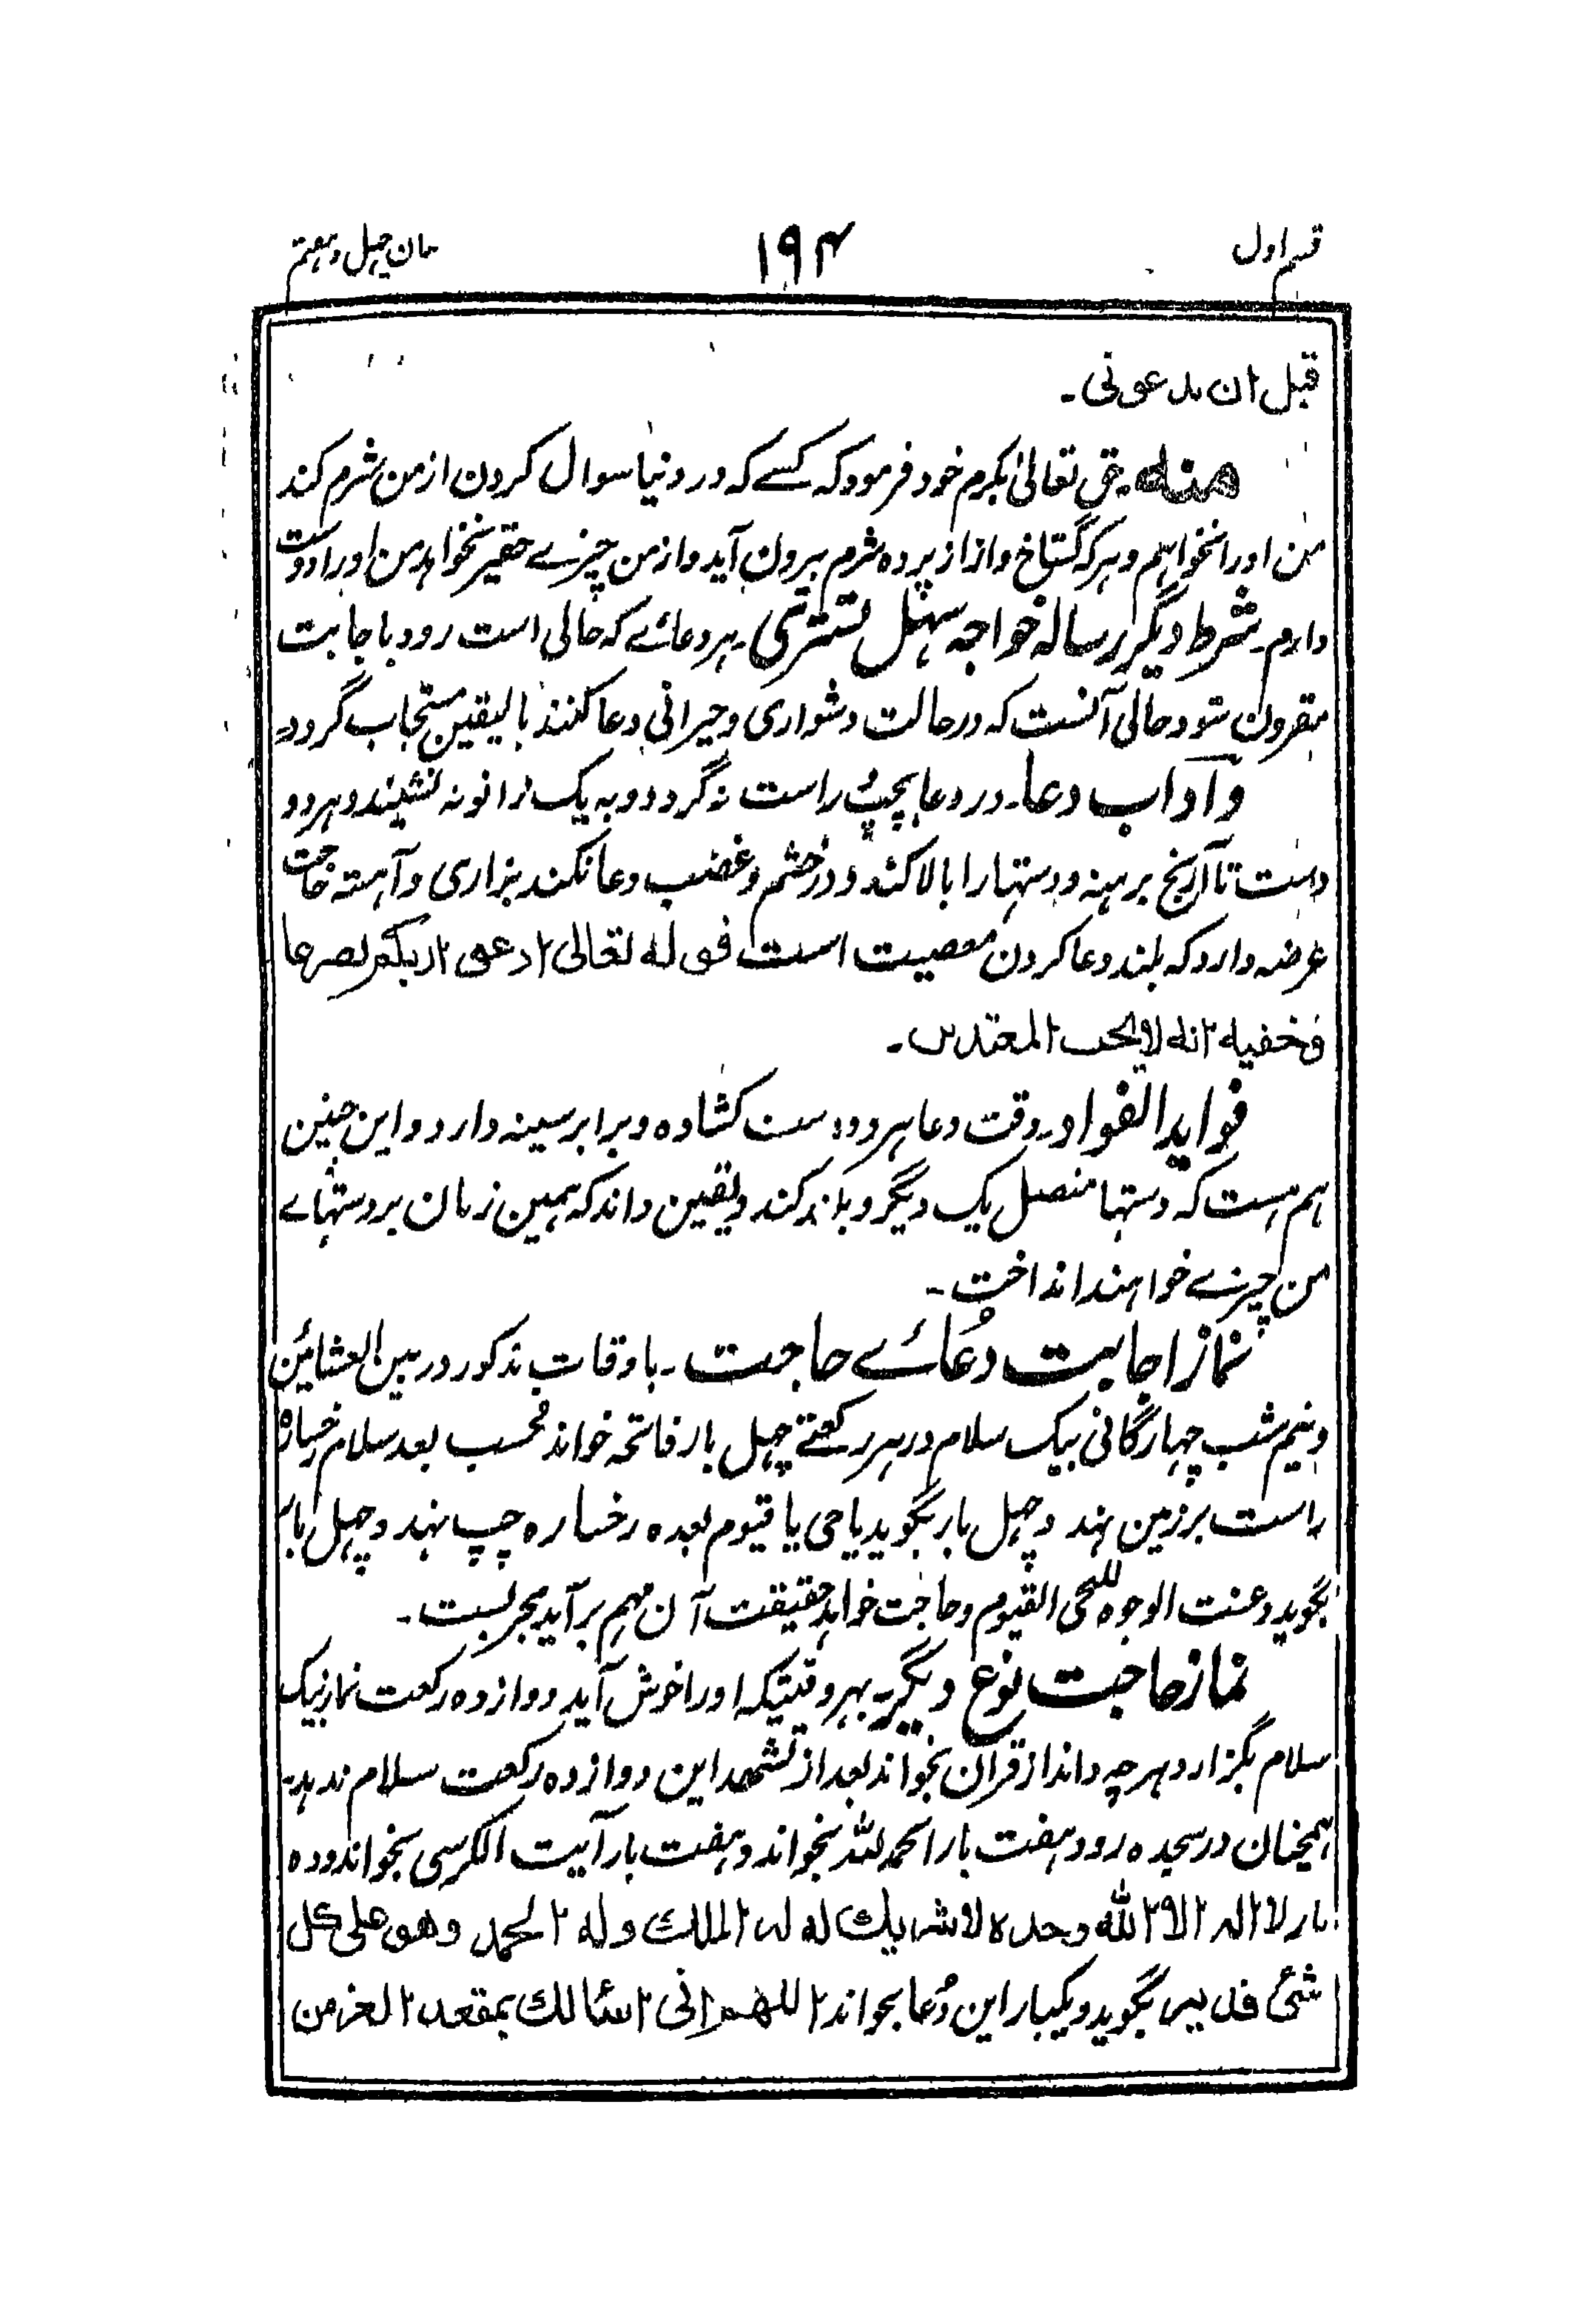 قسم اول
۱۹۴
چہل و ہفتم
قبل ان یدعونی۔
منہ۔ حق تعالیٰ بکرم خود فرمود کہ کسے کہ در دنیا سوال کردن از من شرم کند
من اورا نخواہم و ہرکہ گستاخ وار از پردہ شرم بیرون آید و از من چیزے حقیر نخواہد من اورا دوست
دارم۔ شرط دیگر رسالہ خواجہ سہل تستری۔ ہر دعائے کہ حالی است رود باجابت
مقرون شود و حالی آنست کہ در حالت دشواری و حیرانی دعا کنند بالیقین مستجاب گردد
و آداب دعا۔ در دعا بچپ راست نہ گردد و بہ یک زانو نہ نشیند و ہر دو
دست تا آرنج برہنہ و دستہا را بالا کشد و در خشم و غضب دعا نکند بزاری و آہستہ حاجت
عرضہ دارد کہ بلند دعا کردن معصیت است قولہ تعالی ادعوا ربکم تضرعا
و خفیہ انہ لا یحب المعتدین۔
فواید الفواد۔ وقت دعا ہر دو دست کشادہ و برابر سینہ دارد و این چنین
ہم ہست کہ دستہا متصل یک دیگر و بلند کند و یقین داند کہ ہمین زمان بر دستہاے
من چیزے خواہند انداخت۔
نماز اجابت دُعائے حاجت۔ باوقات مذکور در بین العشائین
و نیم شب چہارگانی بیک سلام در ہر رکعتے چہل بار فاتحہ خواند فحسب بعد سلام رخسارہ
راست بر زمین نہد و چہل بار بگوید یا حی یا قیوم بعدہ رخسارہ چپ نہد و چہل بار
بگوید و عنت الوجوہ للحی القیوم و حاجت خواہد حقیقت آن مہم برآید مجربست۔
نماز حاجت نوع دیگر۔ بہر وقتیکہ اورا خوش آید دوازدہ رکعت نماز بیک
سلام بگزارد و ہرچہ داند از قرآن بخواند بعد از تشہد این دوازدہ رکعت سلام ندہد۔
ہمچنان در سجدہ رود ہفت بار الحمد للہ بخواند و ہفت بار آیت الکرسی بخواند و دہ
بار لا الہ الا اللہ وحدہ لا شریک لہ لہ الملک و لہ الحمد و ھو علی کل
شئ قدیر بگوید و یکبار این دُعا بخواند اللھم انی اسئالک بمقعد العز من